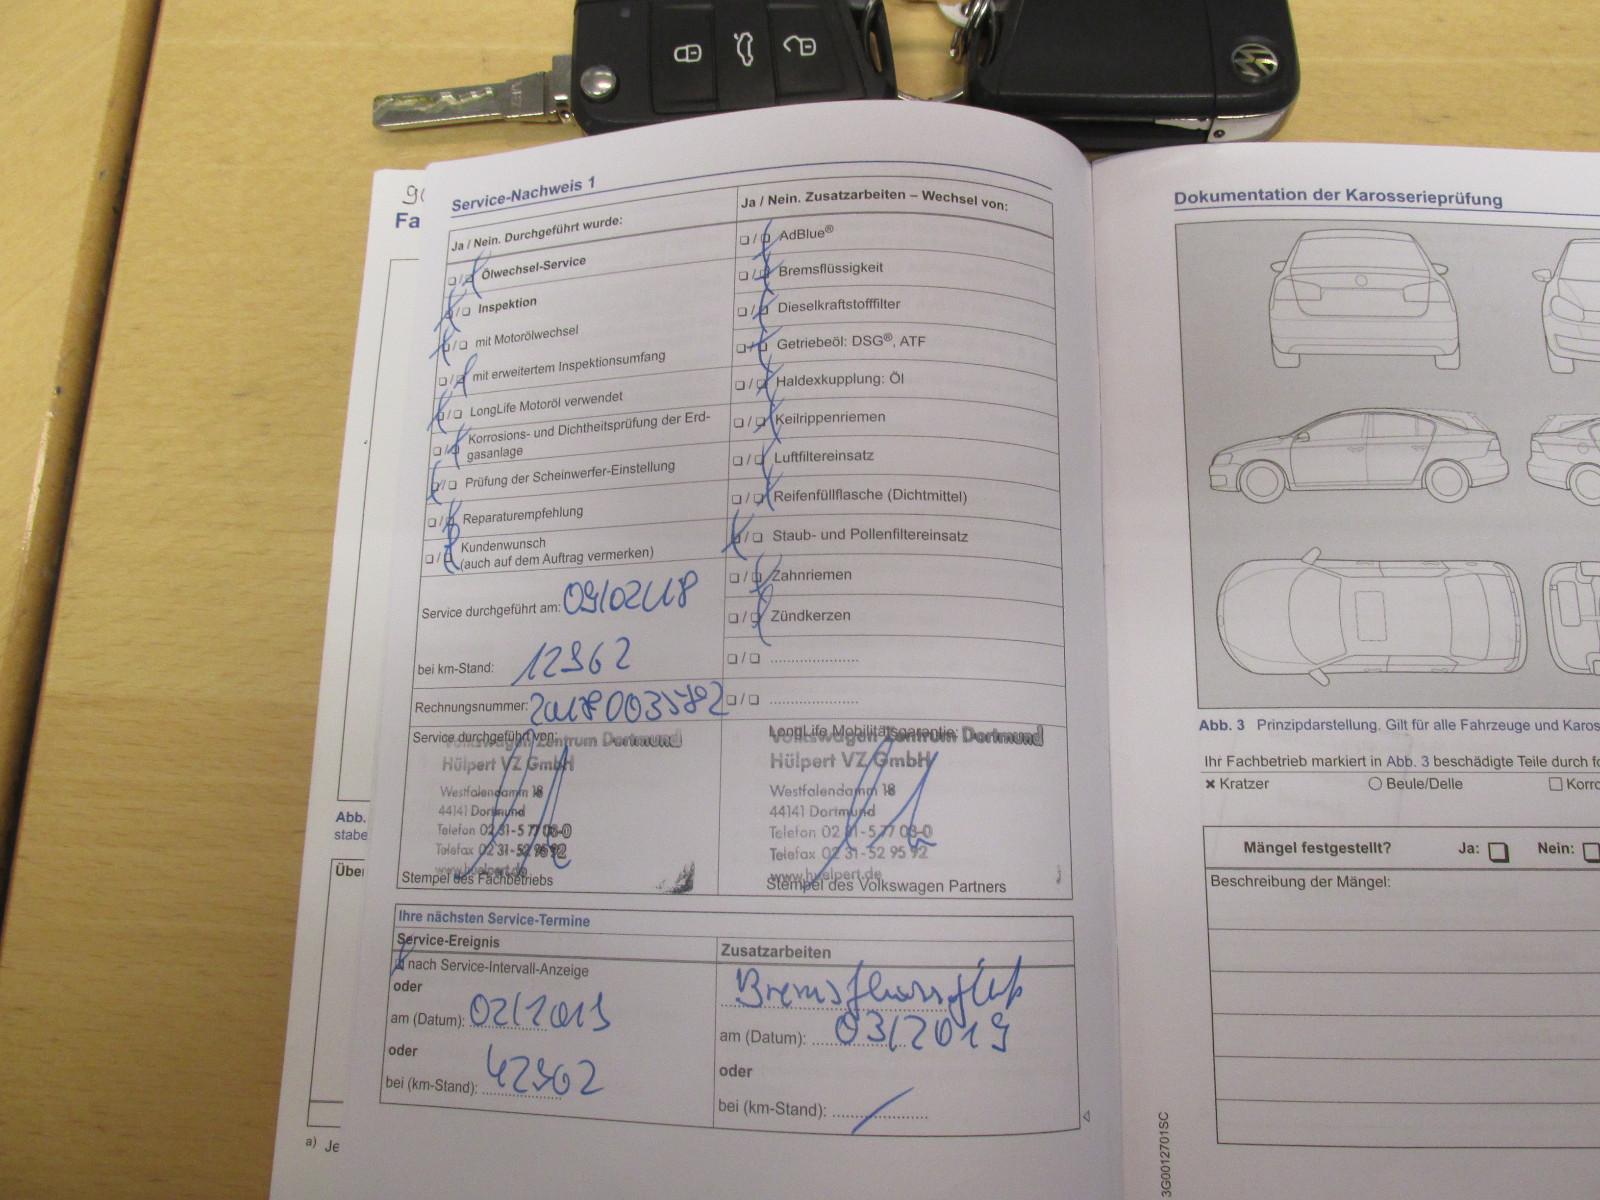 Service-Nachweis 1
Ja / Nein. Durchgeführt wurde:
Ölwechsel-Service
Inspektion
mit Motorölwechsel
mit erweitertem Inspektionsumfang
LongLife Motoröl verwendet
Korrosions- und Dichtheitsprüfung der Erd-
gasanlage
Prüfung der Scheinwerfer-Einstellung
Reparaturempfehlung
Kundenwunsch
(auch auf dem Auftrag vermerken)
Service durchgeführt am:
bei km-Stand: 12962
Rechnungsnummer:
Service durchgeführt von:
Volkswagen Zentrum Dortmund
Hülpert VZ GmbH
Westfalendamm 18
44141 Dortmund
Telefon 02 31-5 77 08-0
Telefax 02 31-52 95 92
www.huelpert.de
Stempel des Fachbetriebs
Ja / Nein. Zusatzarbeiten – Wechsel von:
AdBlue®
Bremsflüssigkeit
Dieselkraftstofffilter
Getriebeöl: DSG®, ATF
Haldexkupplung: Öl
Keilrippenriemen
Luftfiltereinsatz
Reifenfüllflasche (Dichtmittel)
Staub- und Pollenfiltereinsatz
Zahnriemen
Zündkerzen
LongLife Mobilitätsgarantie:
Volkswagen Zentrum Dortmund
Hülpert VZ GmbH
Westfalendamm 18
44141 Dortmund
Telefon 02 31-5 77 08-0
Telefax 02 31-52 95 92
www.huelpert.de
Stempel des Volkswagen Partners
Ihre nächsten Service-Termine
Service-Ereignis
nach Service-Intervall-Anzeige
oder
am (Datum): 02/2019
oder
bei (km-Stand): 42962
Zusatzarbeiten
am (Datum): 03/2019
oder
bei (km-Stand):
Fa
Abb.
stabe
Über
a) Je
Dokumentation der Karosserieprüfung
Abb. 3 Prinzipdarstellung. Gilt für alle Fahrzeuge und Karos
Ihr Fachbetrieb markiert in Abb. 3 beschädigte Teile durch fo
Kratzer Beule/Delle Korro
Mängel festgestellt? Ja: Nein:
Beschreibung der Mängel:
3G0012701SC